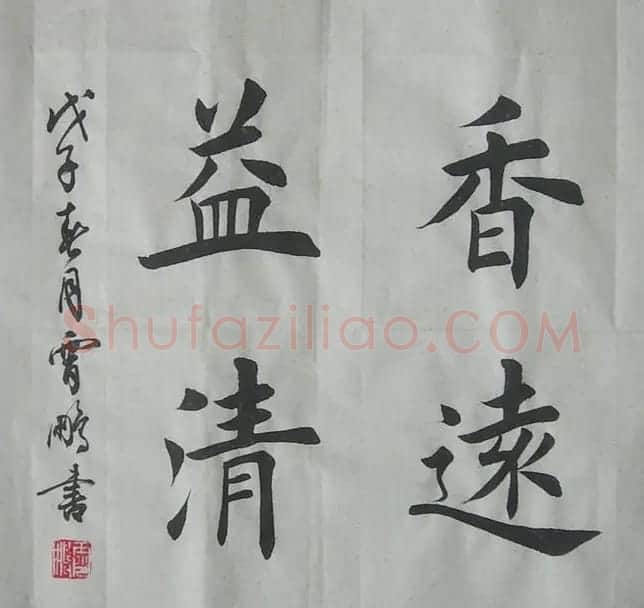 香遠
益清
戊子春月霄鵬書
Shufaziliao.COM